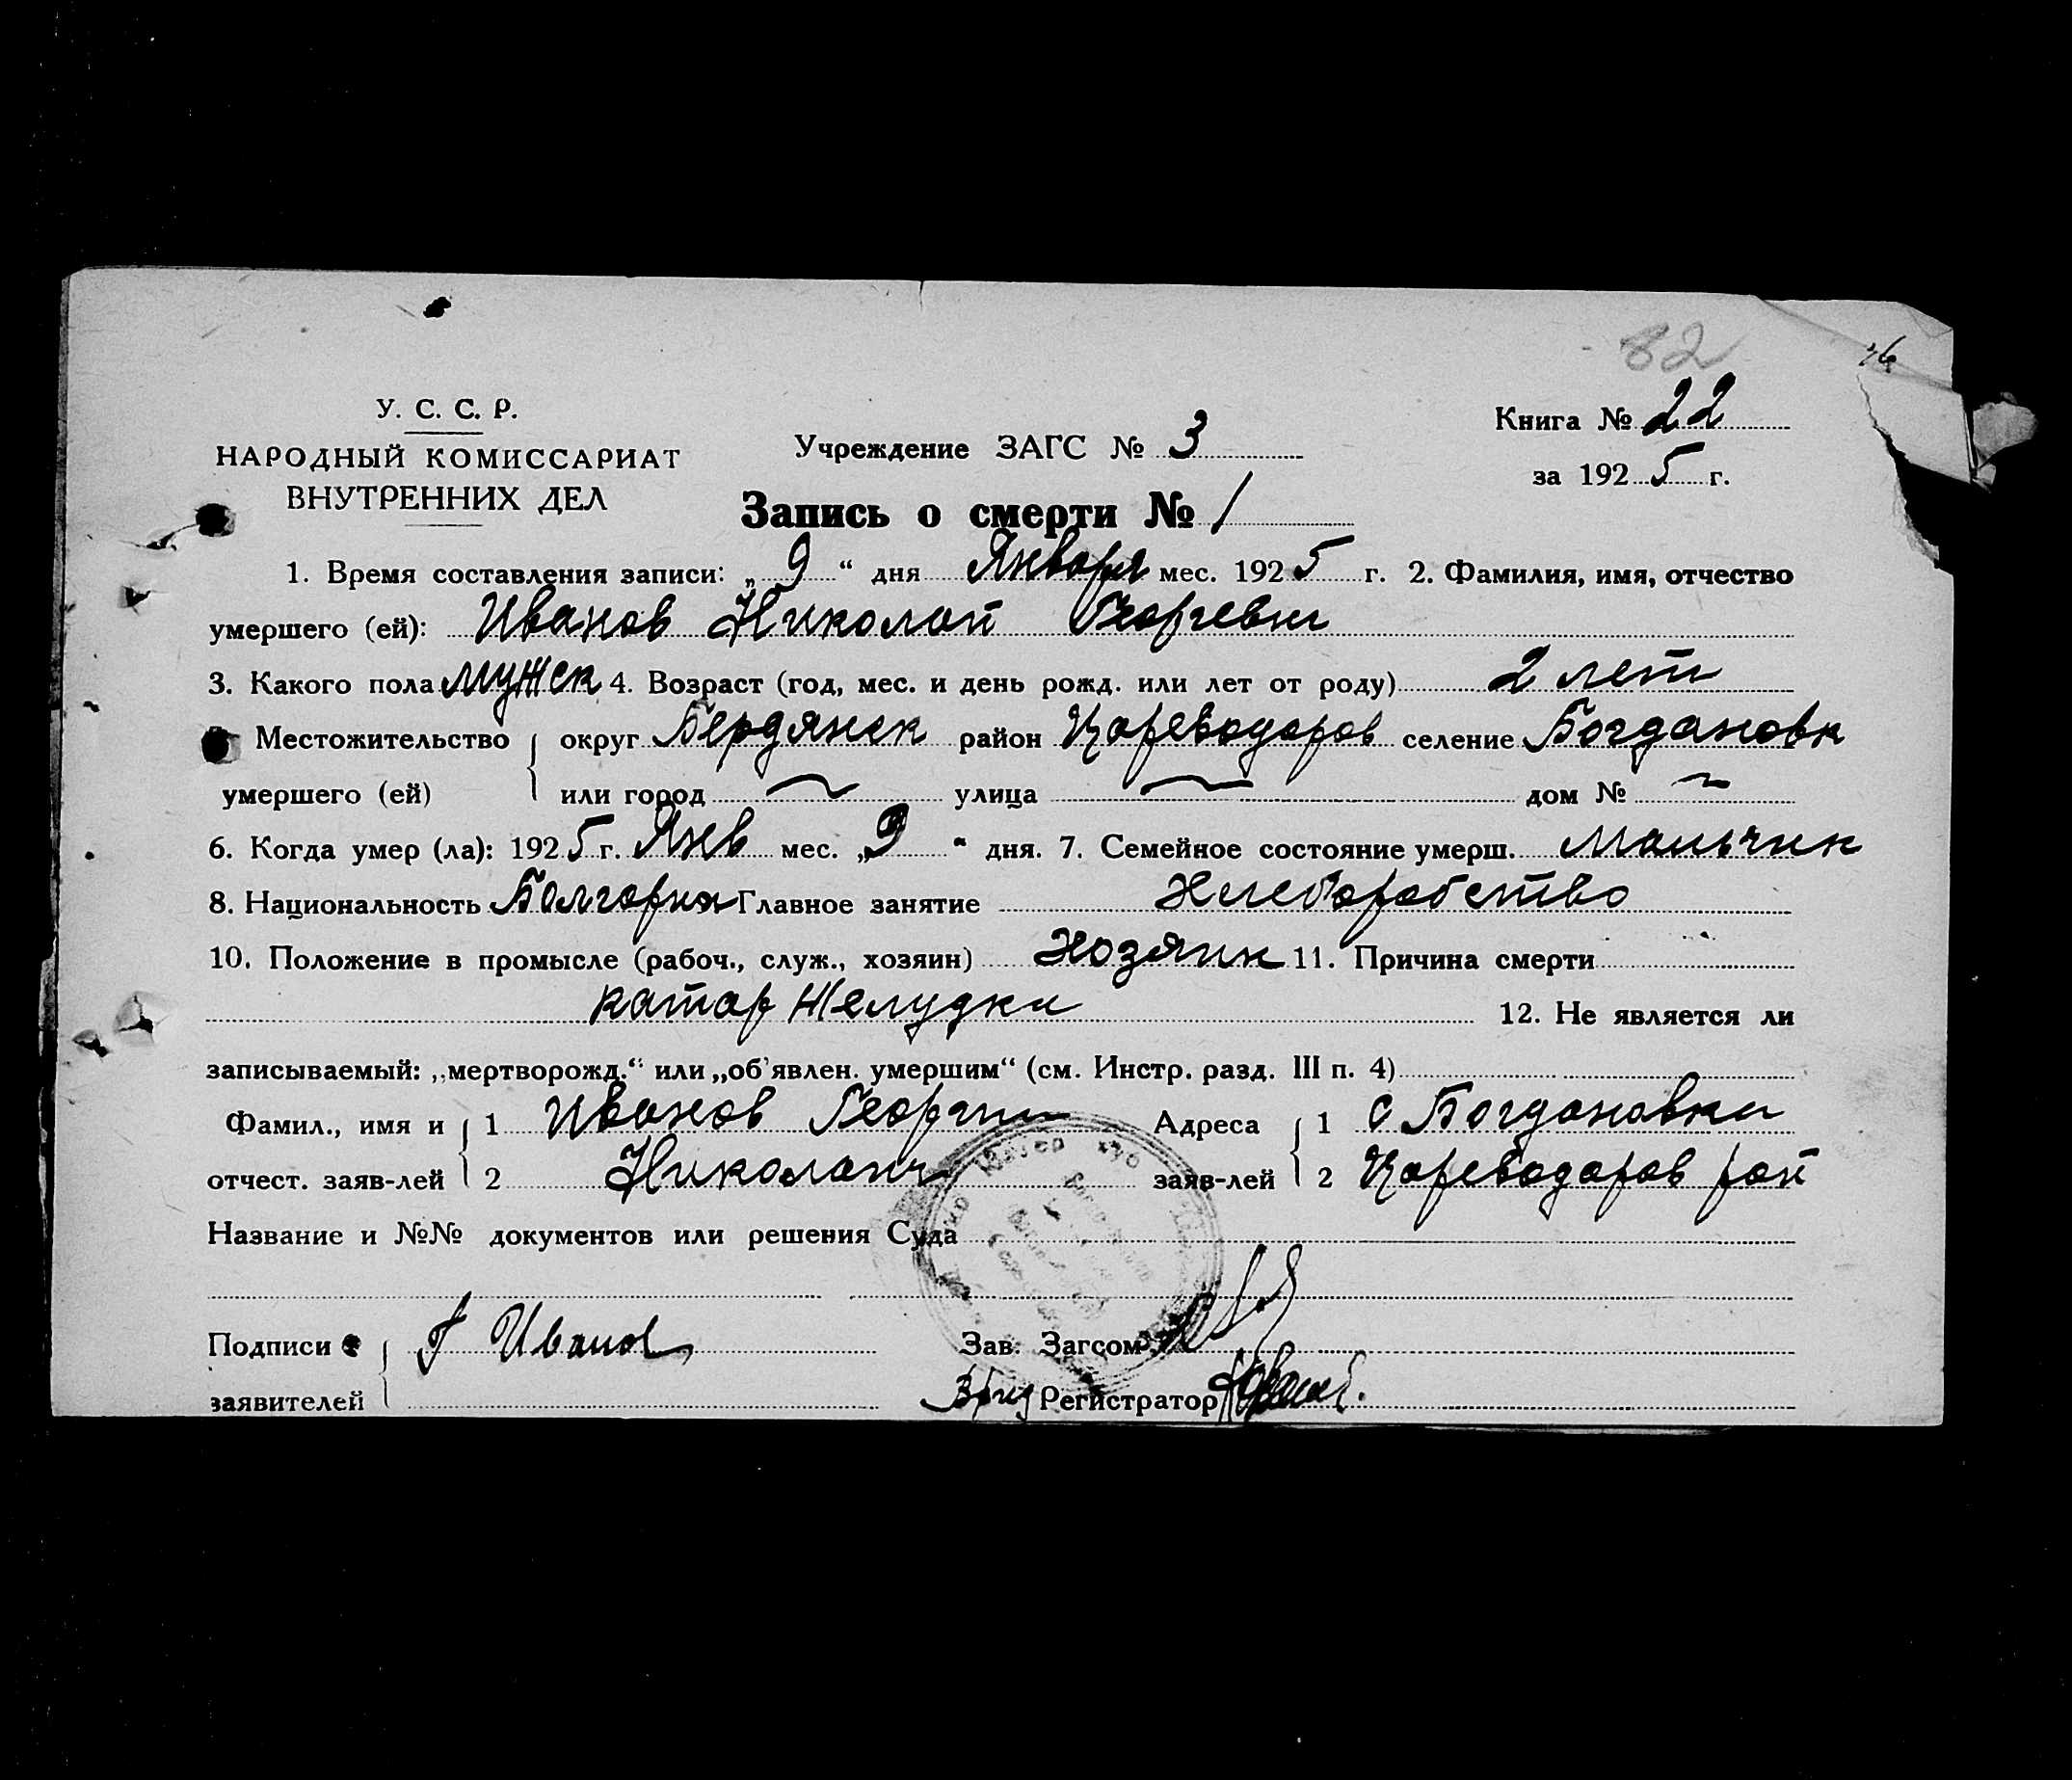 82
У. С. С. Р.
НАРОДНЫЙ КОМИССАРИАТ
ВНУТРЕННИХ ДЕЛ
Учреждение ЗАГС № 3
Книга № 22
за 1925 г.
Запись о смерти № 1
1. Время составления записи: „9“ дня Января мес. 1925 г. 2. Фамилия, имя, отчество
умершего (ей): Иванов Николай Георгевич
3. Какого пола мужск 4. Возраст (год, мес. и день рожд. или лет от роду) 2 лет
Местожительство округ Бердянск район Цареводаров селение Богдановк
умершего (ей) или город ~ улица ~ дом № ~
6. Когда умер (ла): 1925 г. Янв мес. „9“ дня. 7. Семейное состояние умерш. Мальчик
8. Национальность Болгарин Главное занятие Хлеборобство
10. Положение в промысле (рабоч., служ., хозяин) Хозяин 11. Причина смерти
катар Желудка 12. Не является ли
записываемый: „мертворожд.“ или „об'явлен. умершим“ (см. Инстр. разд. III п. 4)
Фамил., имя и 1 Иванов Георгий Адреса 1 с Богдановка
отчест. заяв-лей 2 Николаич заяв-лей 2 Цареводаров рай
Название и №№ документов или решения Суда
Подписи Г Иванов Зав. Загсом
заявителей Регистратор